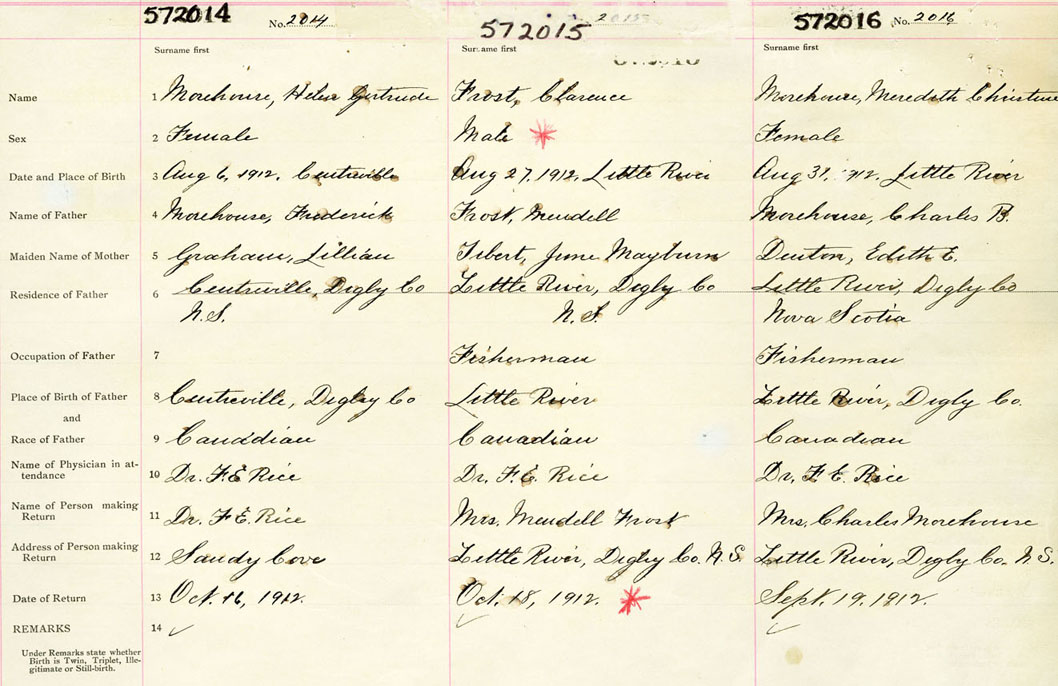 572014 No. 2014 572015 572016 No. 2016
Surname first Surname first Surname first
Name 1 Morehouse, Helen Gertrude Frost, Clarence Morehouse, Meredith Christine
Sex 2 Female Male Female
Date and Place of Birth 3 Aug 6, 1912, Centreville Aug 27, 1912, Little River Aug 31, 1912, Little River
Name of Father 4 Morehouse, Frederick Frost, Wendell Morehouse, Charles B.
Maiden Name of Mother 5 Graham, Lillian Tibert, June Mayburn Denton, Edith E.
Residence of Father 6 Centreville, Digby Co Little River, Digby Co Little River, Digby Co
N.S. N.S. Nova Scotia
Occupation of Father 7 Fisherman Fisherman
Place of Birth of Father 8 Centreville, Digby Co Little River Little River, Digby Co.
and
Race of Father 9 Canadian Canadian Canadian
Name of Physician in at-
tendance 10 Dr. F. E. Rice Dr. F. E. Rice Dr. F. E. Rice
Name of Person making
Return 11 Dr. F. E. Rice Mrs. Wendell Frost Mrs. Charles Morehouse
Address of Person making
Return 12 Sandy Cove Little River, Digby Co. N.S. Little River, Digby Co. N.S.
Date of Return 13 Oct. 16, 1912. Oct. 18, 1912. Sept. 19, 1912.
REMARKS 14 ✓ ✓ ✓
Under Remarks state whether
Birth is Twin, Triplet, Ille-
gitimate or Still-birth.